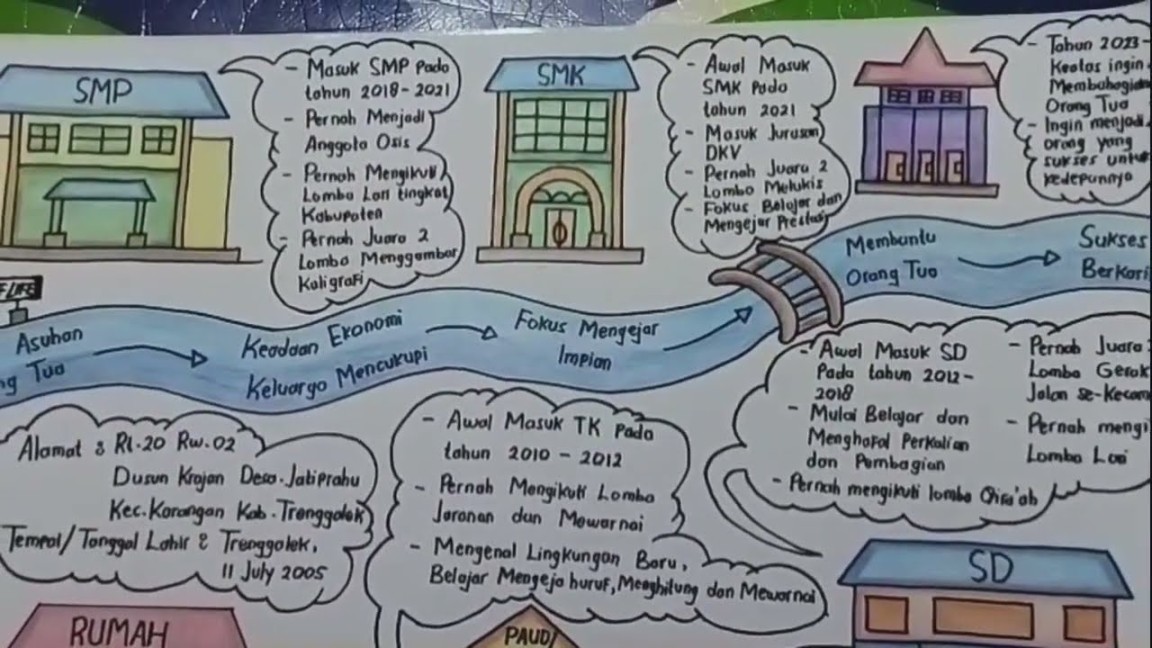 SMP
- Masuk SMP Pada
tahun 2018-2021
- Pernah Menjadi
Anggota Osis
- Pernah Mengikuti
Lomba Lari tingkat
Kabupaten
- Pernah Juara 2
Lomba Menggambar
Kaligrafi
SMK
- Awal Masuk
SMK Pada
tahun 2021
- Masuk Jurusan
DKV
- Pernah Juara 2
Lomba Melukis
- Fokus Belajar dan
Mengejar Prestasi
- Tahun 2023-
Keatas ingin
Orang Tua
- Ingin menjadi
orang yang
sukses untuk
kedepannya
F LIFE
Asuhan
Tua
Keadaan Ekonomi
Keluarga Mencukupi
Fokus Mengejar
Impian
Membantu
Orang Tua
Sukses
Alamat : Rt.20 Rw.02
Dusun Krajan Desa.Jatiprahu
Kec.Karangan Kab.Trenggalek
Tempat/Tanggal Lahir : Trenggalek,
11 July 2005
RUMAH
- Awal Masuk TK Pada
tahun 2010 - 2012
- Pernah Mengikuti Lomba
Jaranan dan Mewarnai
- Mengenal Lingkungan Baru,
Belajar Mengeja huruf, Menghitung dan Mewarnai
PAUD
- Awal Masuk SD
Pada tahun 2012-
2018
- Mulai Belajar dan
Menghafal Perkalian
dan Pembagian
- Pernah mengikuti lomba Qira'ah
- Pernah Juara
Lomba Gerak
Jalan
- Pernah
Lomba Lari
SD